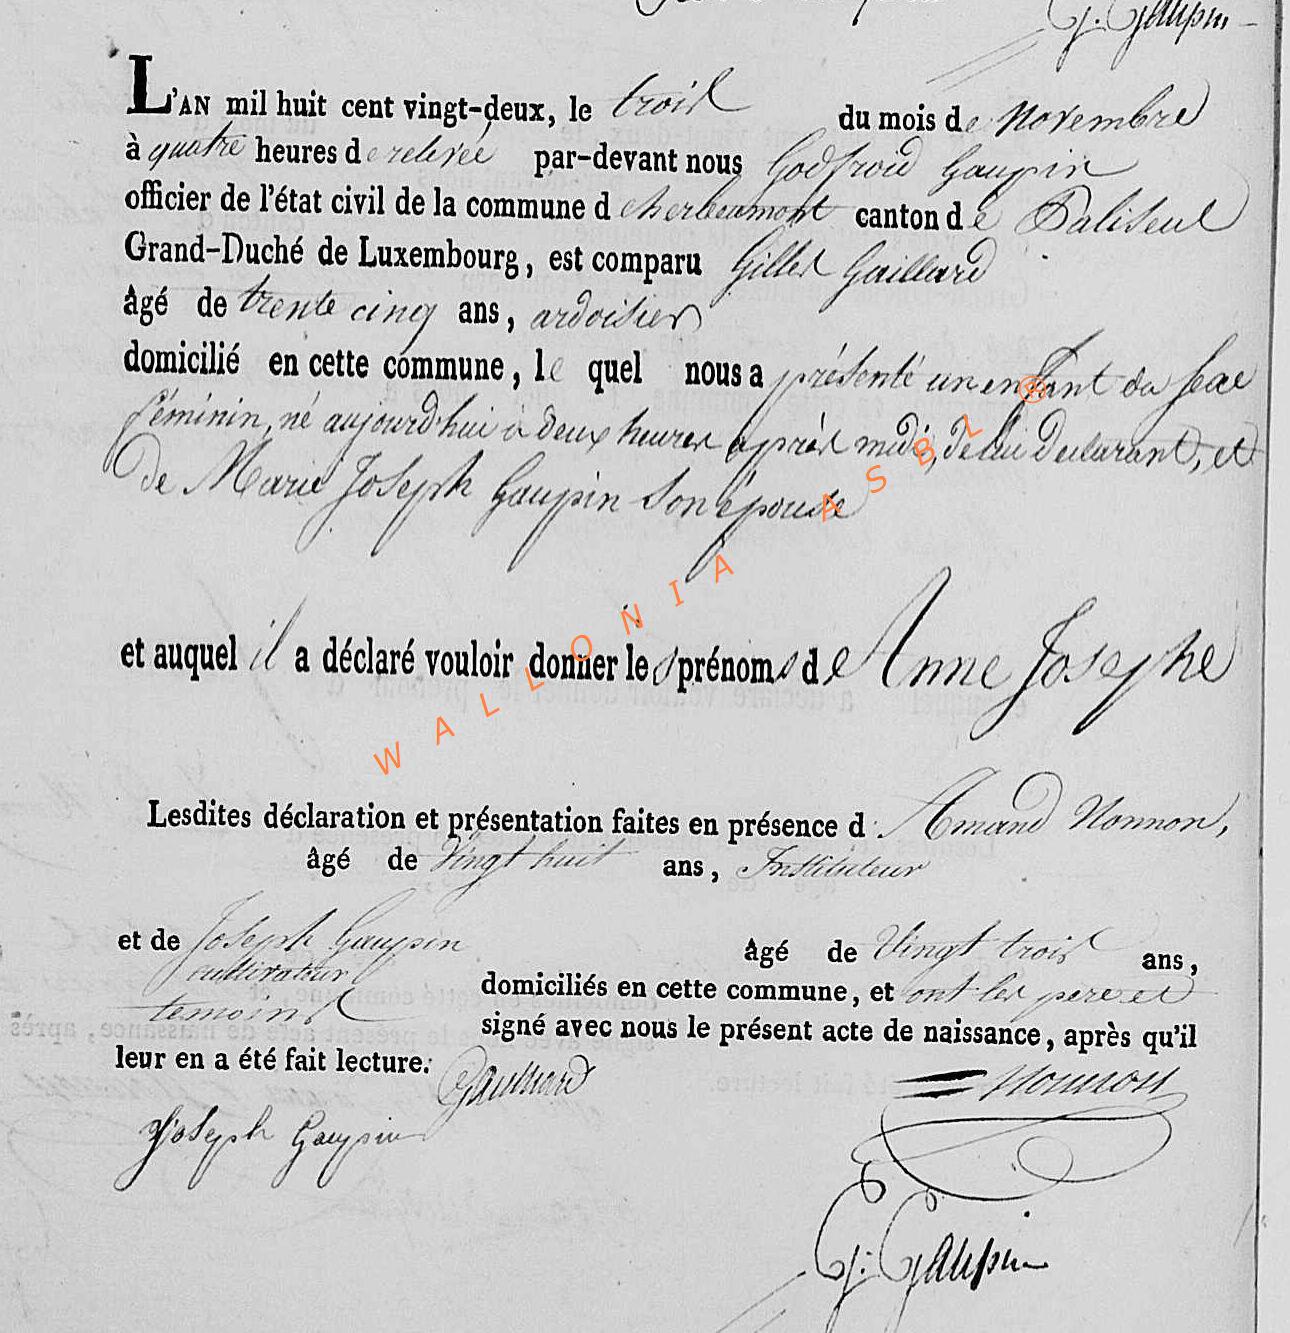 G. Gaupin
L'AN mil huit cent vingt-deux, le trois du mois de Novembre
à quatre heures de relevée par-devant nous Godfroid Gaupin
officier de l'état civil de la commune d'herbeumont canton de Paliseul
Grand-Duché de Luxembourg, est comparu Gilles Gaillard
âgé de trente cinq ans, ardoisier
domicilié en cette commune, le quel nous a présenté un enfant du sexe
féminin, né aujourd'hui à deux heures après midi, de lui declarant, et
de Marie Joseph Gaupin son épouse
et auquel il a déclaré vouloir donner les prénoms de Anne Josephe
WALLONIA ASBL ®
Lesdites déclaration et présentation faites en présence d'Amand Nonnon,
âgé de vingt huit ans, Instituteur
et de Joseph Gaupin âgé de vingt trois ans,
cultivateur
domiciliés en cette commune, et ont les pere et
temoins
signé avec nous le présent acte de naissance, après qu'il
leur en a été fait lecture.
Gaillard
Nonnon
Joseph Gaupin
G. Gaupin